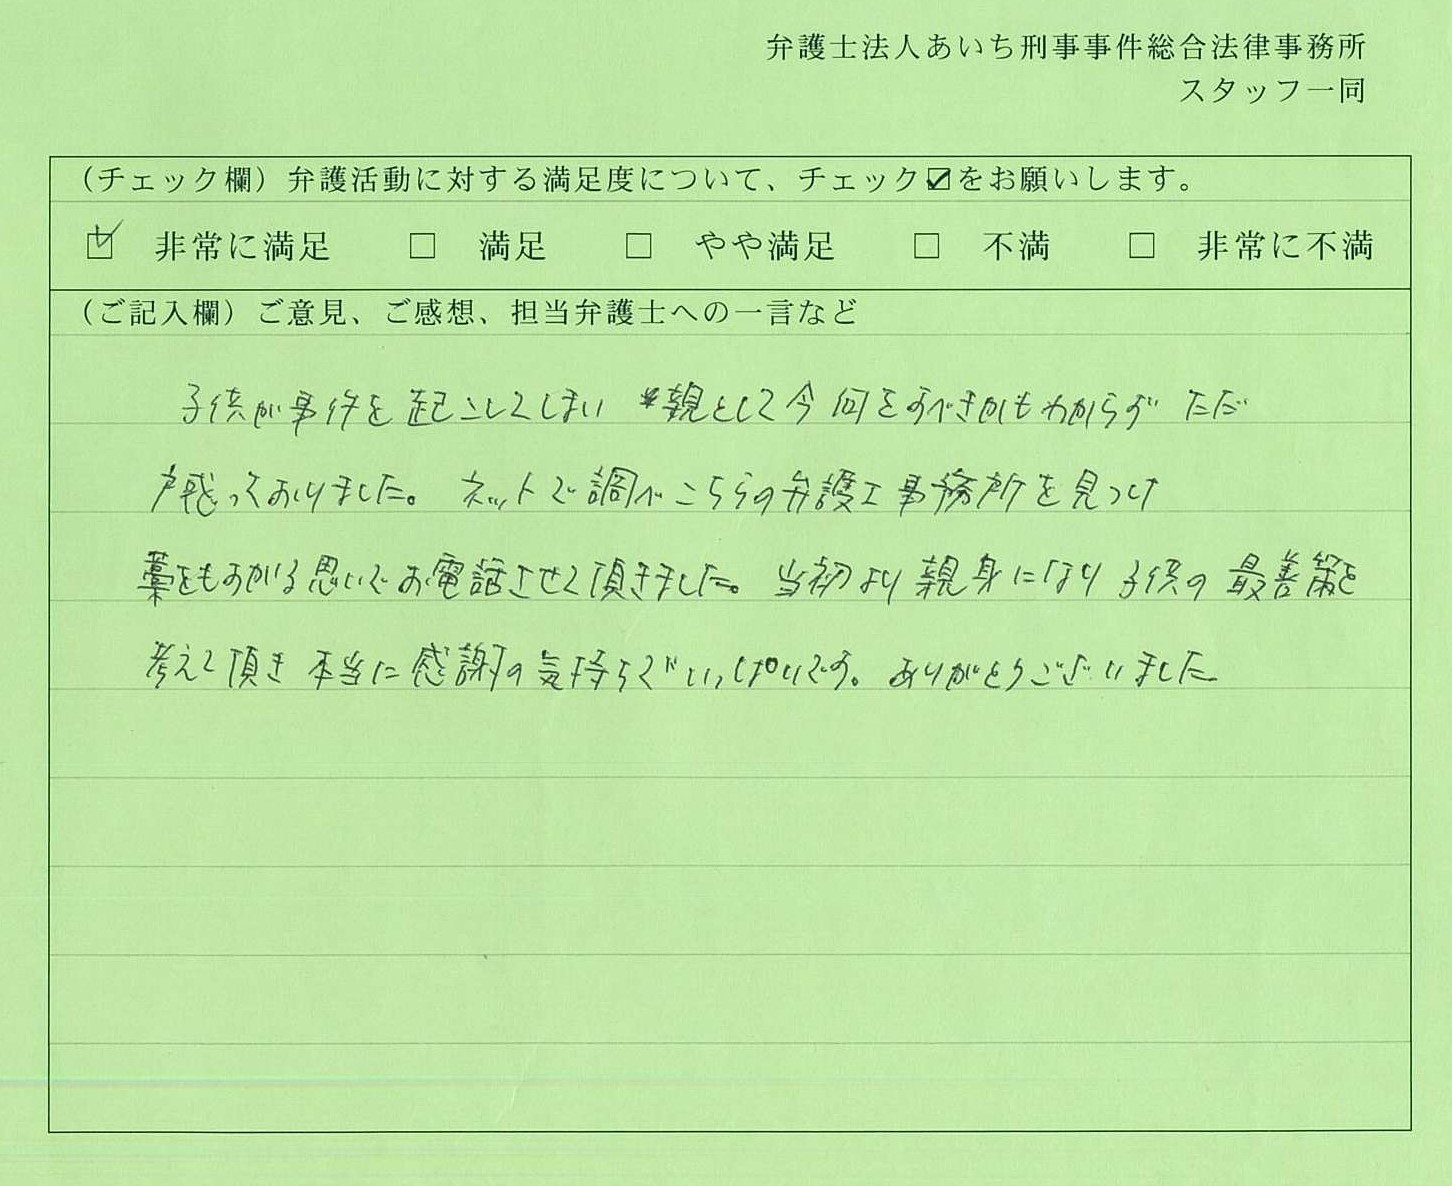 弁護士法人あいち刑事事件総合法律事務所
スタッフ一同
(チェック欄) 弁護活動に対する満足度について、チェック☑をお願いします。
☑ 非常に満足 □ 満足 □ やや満足 □ 不満 □ 非常に不満
(ご記入欄) ご意見、ご感想、担当弁護士への一言など
子供が事件を起こしてしまい 親として今何をすべきかもわからず ただ
戸惑っておりました。 ネットで調べこちらの弁護士事務所を見つけ
藁をもすがる思いでお電話させて頂きました。 当初より親身になり子供の最善策を
考えて頂き本当に感謝の気持ちでいっぱいです。 ありがとうございました